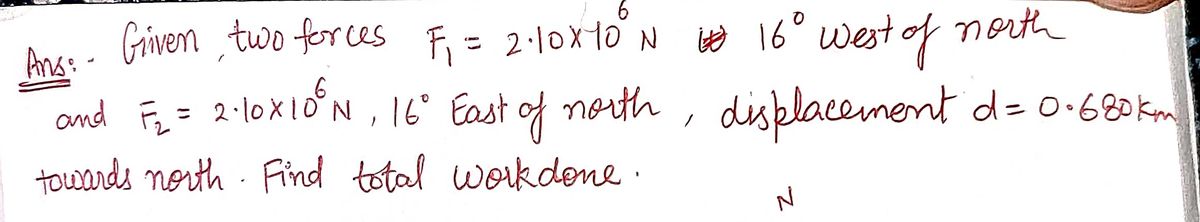 Ans:- Given, two forces F₁ = 2.10X10⁶ N 16° West of north
and F₂ = 2.10X10⁶ N, 16° East of north, displacement d = 0.680km
towards north. Find total workdone.
N